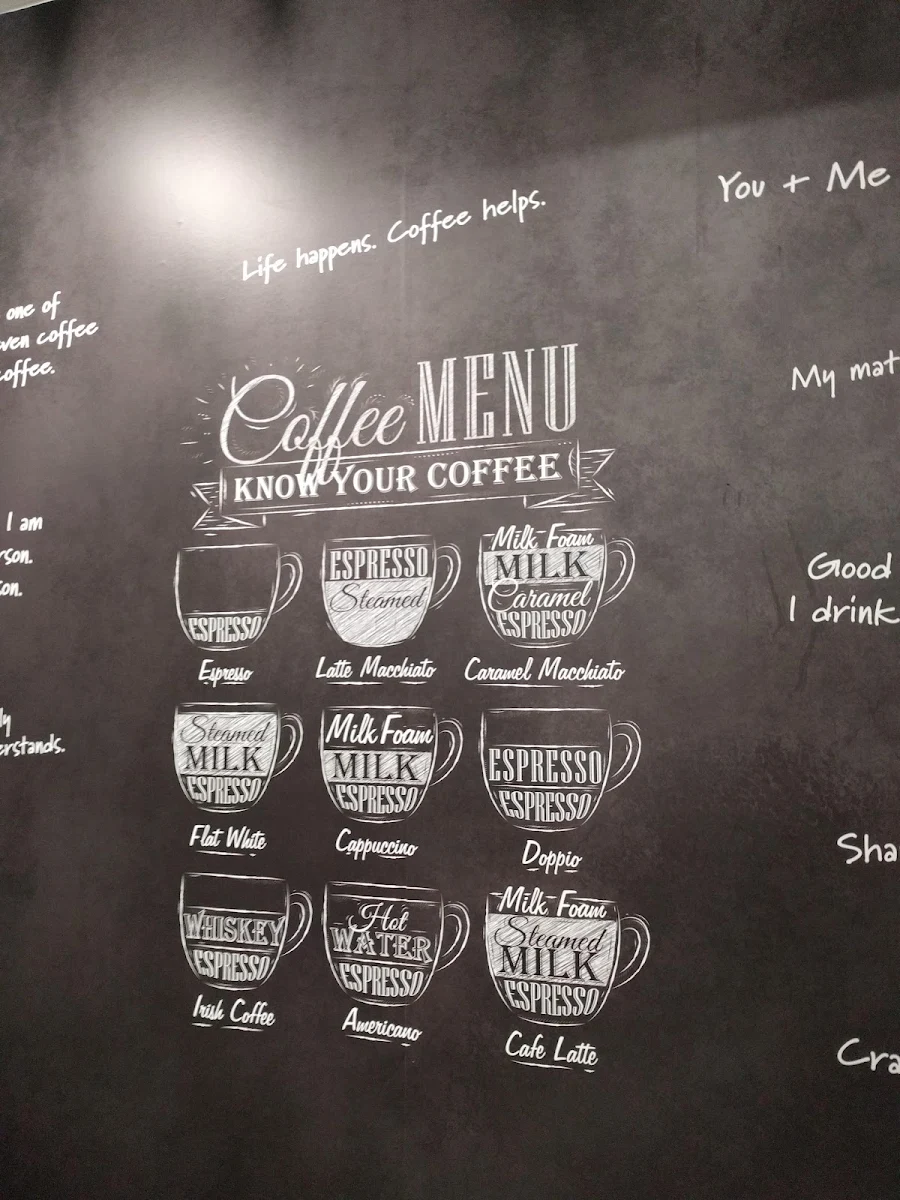 Life happens. Coffee helps.
You + Me
one of
ven coffee
coffee.
My mat
Coffee MENU
KNOW YOUR COFFEE
I am
rson.
on.
Good
I drink
ESPRESSO
Espresso
ESPRESSO
Steamed
Latte Macchiato
Milk Foam
MILK
Caramel
ESPRESSO
Caramel Macchiato
ly
erstands.
Steamed
MILK
ESPRESSO
Flat White
Milk Foam
MILK
ESPRESSO
Cappuccino
ESPRESSO
ESPRESSO
Doppio
Sha
WHISKEY
ESPRESSO
Irish Coffee
Hot
WATER
ESPRESSO
Americano
Milk Foam
Steamed
MILK
ESPRESSO
Cafe Latte
Cra